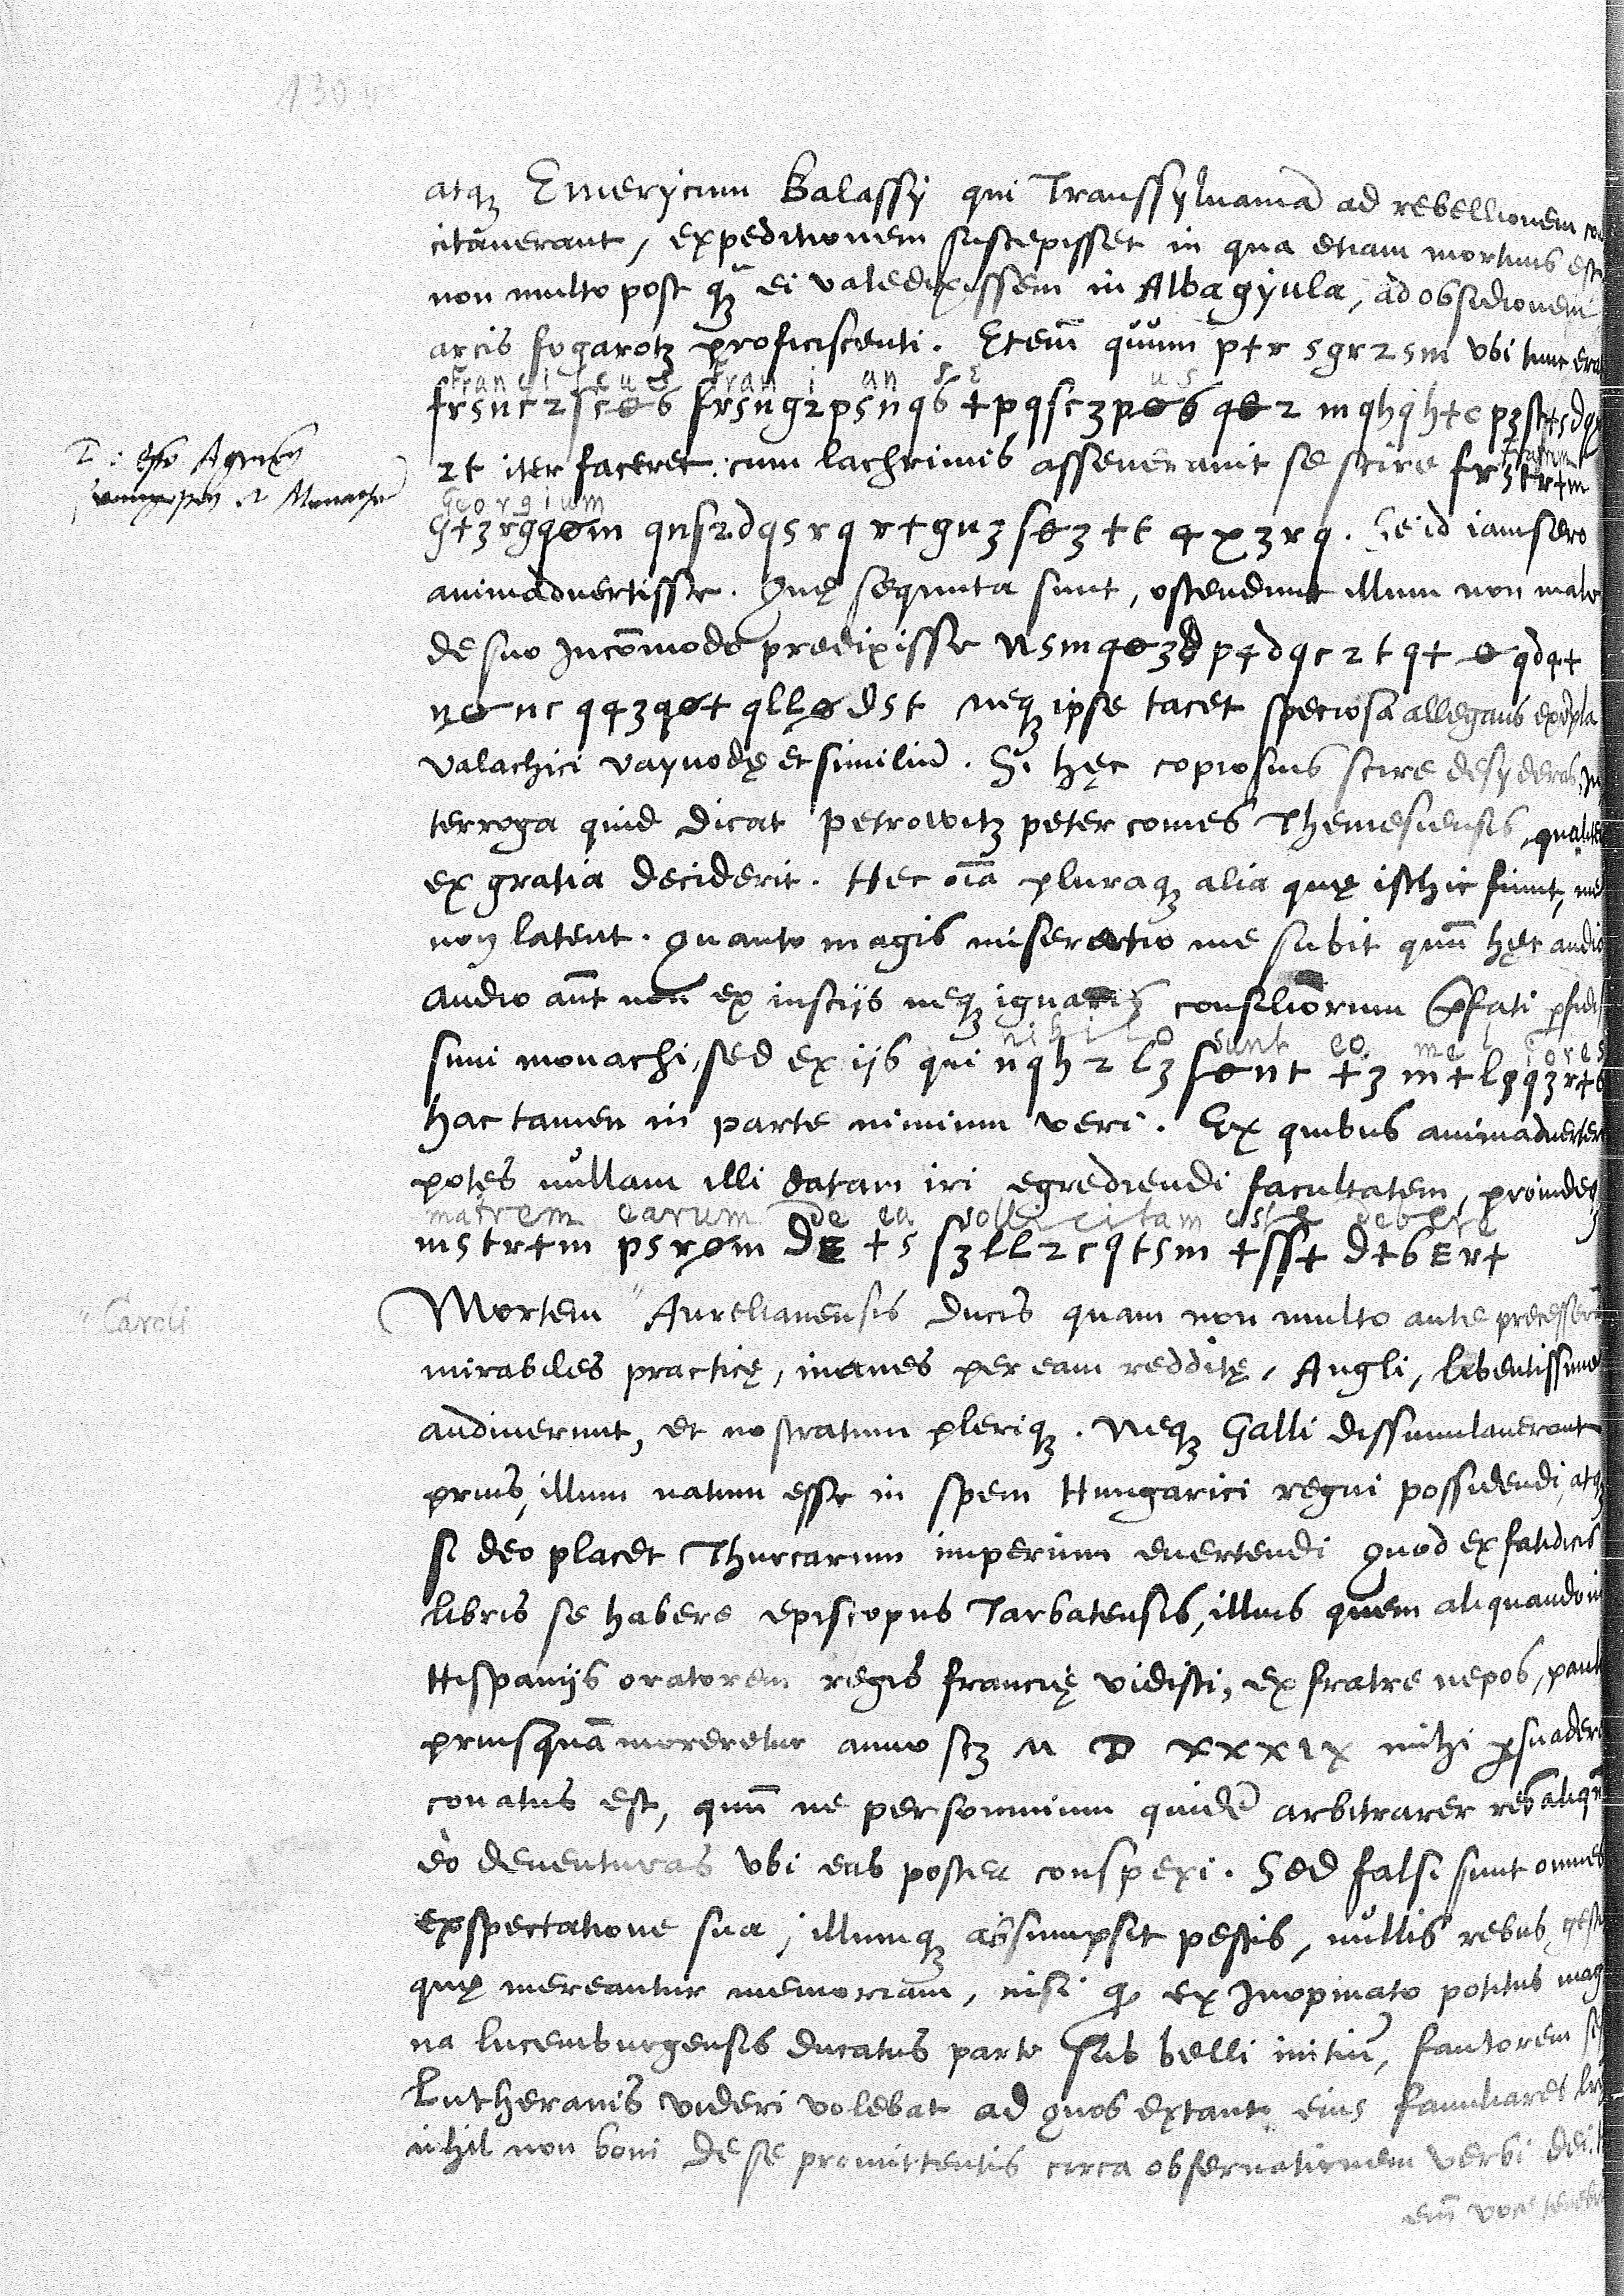 130 v
atq; Emerycum Balassy qui Transsyluaniā ad rebellionem
citauerant, expeditionem suscepisset in qua etiam mortuus est
non multo post q; ei valedixissem in Albagyula, ad obsidionem
arcis fogarotz proficiscenti. Etem̄ quum p+r 5gr25m vbi tunc era
Franciscus Fran i an se us
fr5nc2sce6 fr5ng2p5nq6 +pqsc3pe6 qe2 mqhqh+c
2t iter faceret: cum lachrimis asseuerauit se scire fr5tr+m
fratrem
Georgium
G+3rgqøm qnf2dq5rq r+gn3 se3 +t qx3rq. Se id iam sero
animaduertisse. Quę sequuta sunt, ostendunt illum non male
de suo Incōmodo predixisse n5mqe3d p+dqc2t q+ e qdq+
ne nc qq3qe+ qllød5t neq; ipse tacet speciosa allegans exēpla
valachici vaynodę et similiū. Si hęc copiosius scire desyderas, In
terroga quid dicat Petrowitz peter comes Themesiensis, qualiter
ex gratia deciderit. Hec oīa pluraq; alia quę isthic fiunt, me
non latent. Quanto magis miseratio me subit quū hęc audio
audio aūt non ex inscijs neq; ignaris consiliorum p̄fati perfidis
nihilo sunt eo meliores
simi monachi, sed ex ijs qui nqh2l3 sent +3 m+lqq3r+6
hac tamen in parte nimium veri. Ex quibus animaduertere
potes nullam illi datam iri egrediendi facultatem, proindeq;
matrem earum de ea sollicitam esse debere
m5tr+m p5røm DE +5 s3ll2cqt5m +ss+ d+bEr+
Mortem " Aurelianensis Ducis quam non multo ante precesserūt
" Caroli
mirabiles practicę, inanes per eam redditę, Angli, libentissime
audiuerunt, et nostratium pleriq;. Neq; Galli dissimulauerunt
prius, illum natum esse in spem Hungarici regni possidendi, atq;
si deo placet Thurcarum imperium euertendi quod ex fatidicis
libris se habere episcopus Tarbatensis, illius quem aliquando in
Hispanijs oratorem regis francię vidisti, ex fratre nepos, paulo
priusquā moreretur anno scz M D XXXIX mihi persuadere
conatus est, quū ne per somnium quidē arbitrarer res aliqn̄
eò deuenturas vbi eas postea conspexi. Sed falsi sunt omnes
exspectatione sua, illumq; assumpsit pestis, nullis rebus gestis
quę mereantur memoriam, nisi q ex Inopinato potitus mag
na Lucemburgensis ducatus parte sub belli initiū, fautorem se
Lutheranis videri volebat ad quos extant eius familiares lrę
nihil non boni de se promittentis circa obseruationem verbi dei.